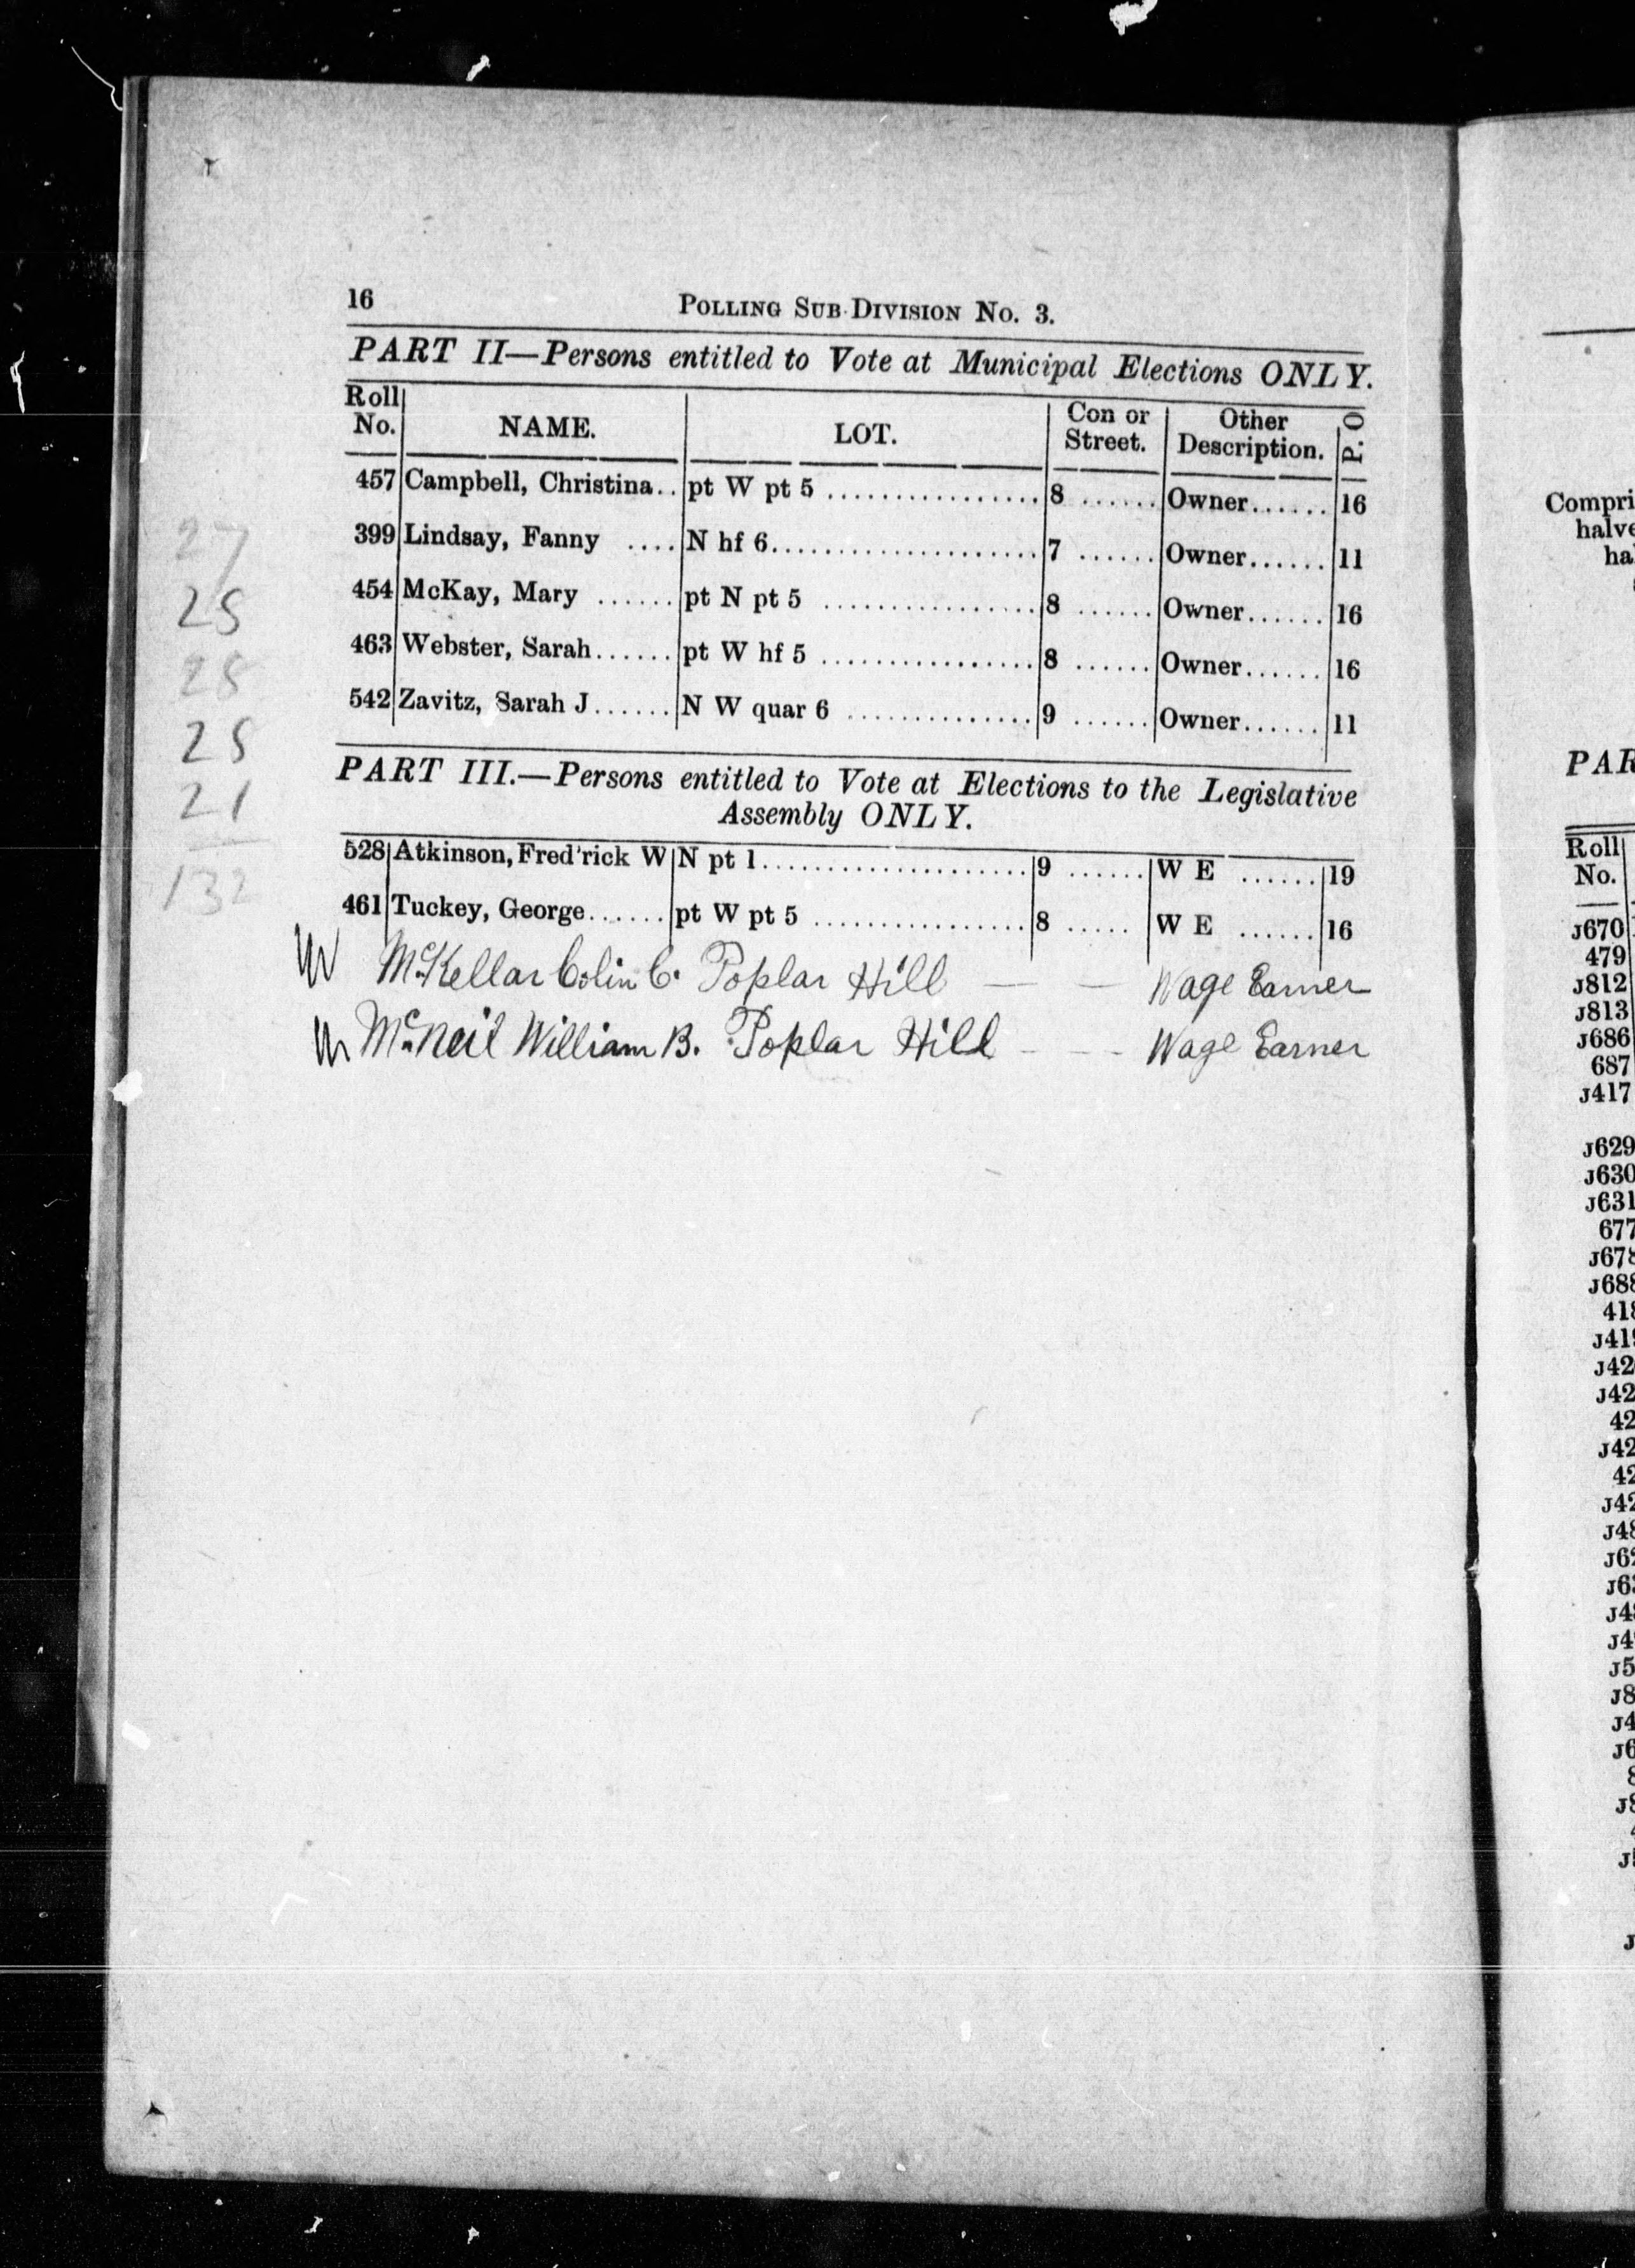 16 POLLING SUB-DIVISION No. 3.
PART II—Persons entitled to Vote at Municipal Elections ONLY.
Roll No. NAME. LOT. Con or Street. Other Description. P. O
457 Campbell, Christina.. pt W pt 5 ................ 8 ...... Owner...... 16
399 Lindsay, Fanny .... N hf 6.................... 7 ...... Owner...... 11
454 McKay, Mary ...... pt N pt 5 ................ 8 ...... Owner...... 16
463 Webster, Sarah...... pt W hf 5 ................ 8 ...... Owner...... 16
542 Zavitz, Sarah J...... N W quar 6 .............. 9 ...... Owner...... 11
PART III.—Persons entitled to Vote at Elections to the Legislative
Assembly ONLY.
528 Atkinson, Fred'rick W N pt 1...................... 9 ...... W E ...... 19
461 Tuckey, George...... pt W pt 5 ................ 8 ..... W E ...... 16
McKellar Colin C. Poplar Hill — — Wage Earner
McNeil William B. Poplar Hill - - - Wage Earner
27
25
25
25
21
132
Compri
halve
ha
PAR
Roll
No.
J670
479
J812
J813
J686
687
J417
J629
J630
J631
677
J678
J688
418
J419
J42
J42
42
J42
42
J42
J48
J62
J63
J4
J4
J5
J8
J4
J6
8
J8
4
J
J